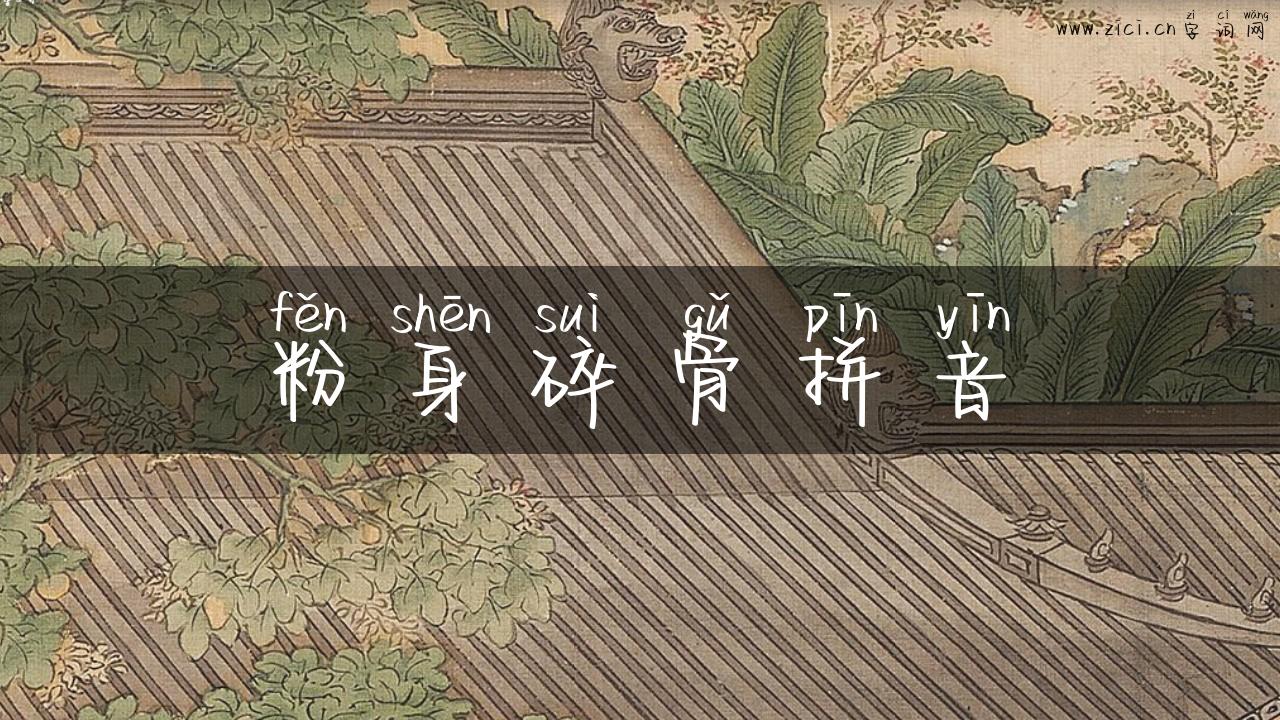 zì cí wǎng
www.zici.cn 字词网
fěn shēn suì gǔ pīn yīn
粉身碎骨拼音